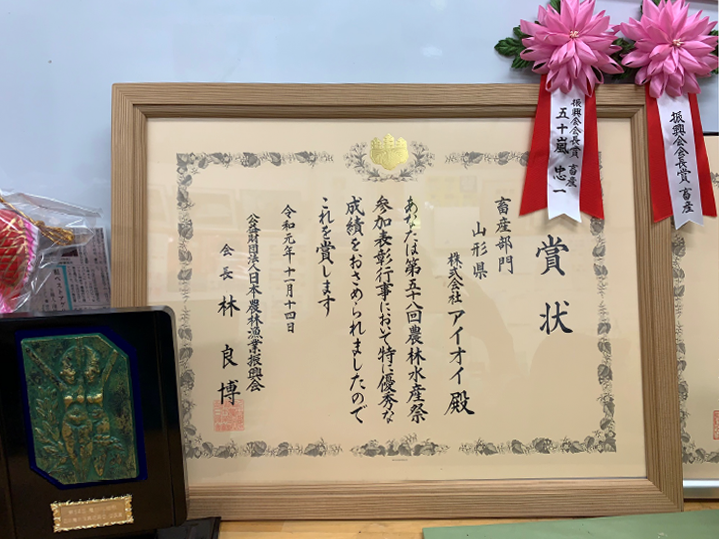 賞状
畜産部門
山形県
株式会社 アイオイ 殿
あなたは第五十八回農林水産祭
参加表彰行事において特に優秀な
成績をおさめられましたので
これを賞します
令和元年十一月十四日
公益財団法人日本農林漁業振興会
会長 林 良博
振興会会長賞 畜産
五十嵐 忠一
振興会会長賞 畜産